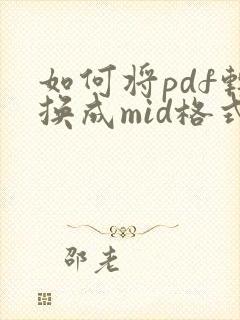 如何将pdf转
换成mid格式
邵老